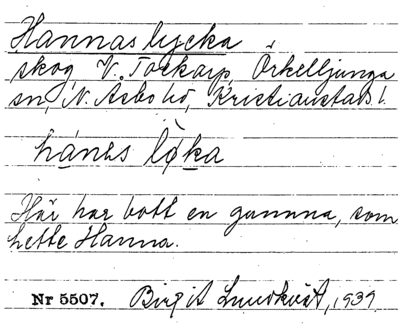 Hannas lycka
skog, V. Torkarp, Örkelljunga
sn, N. Åsbo hd, Kristianstads l.
hanəs løka
Här har bott en gumma, som
hette Hanna.
Nr 5507. Birgit Lundkvist, 1937